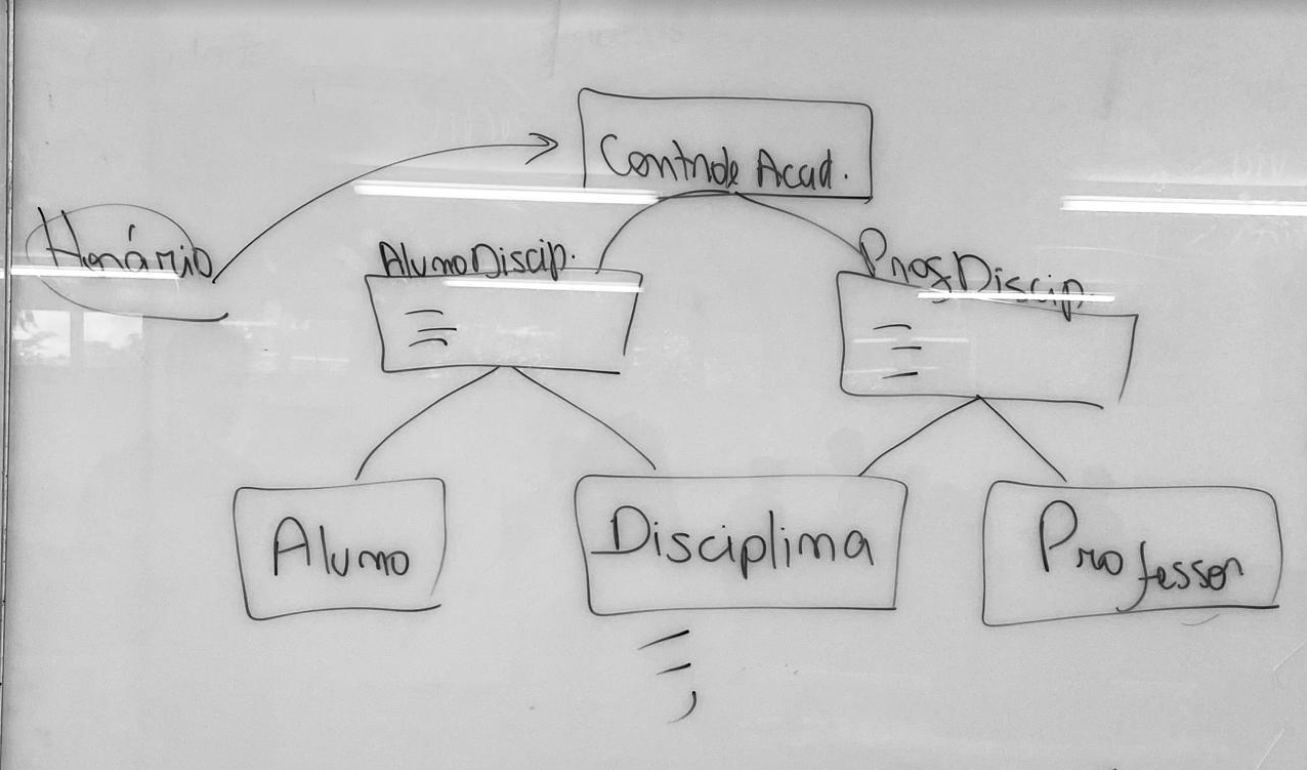 Controle Acad.
Horário
AlunoDiscip.
ProfDiscip.
Aluno
Disciplina
Professor